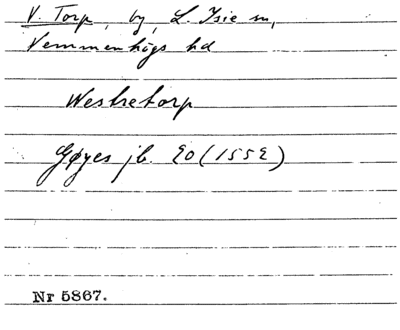 V. Torp, by, L. Isie sn,
Vemmenhögs hd
Westretorp
Gøyes jb. 20 (1552)
Nr 5867.